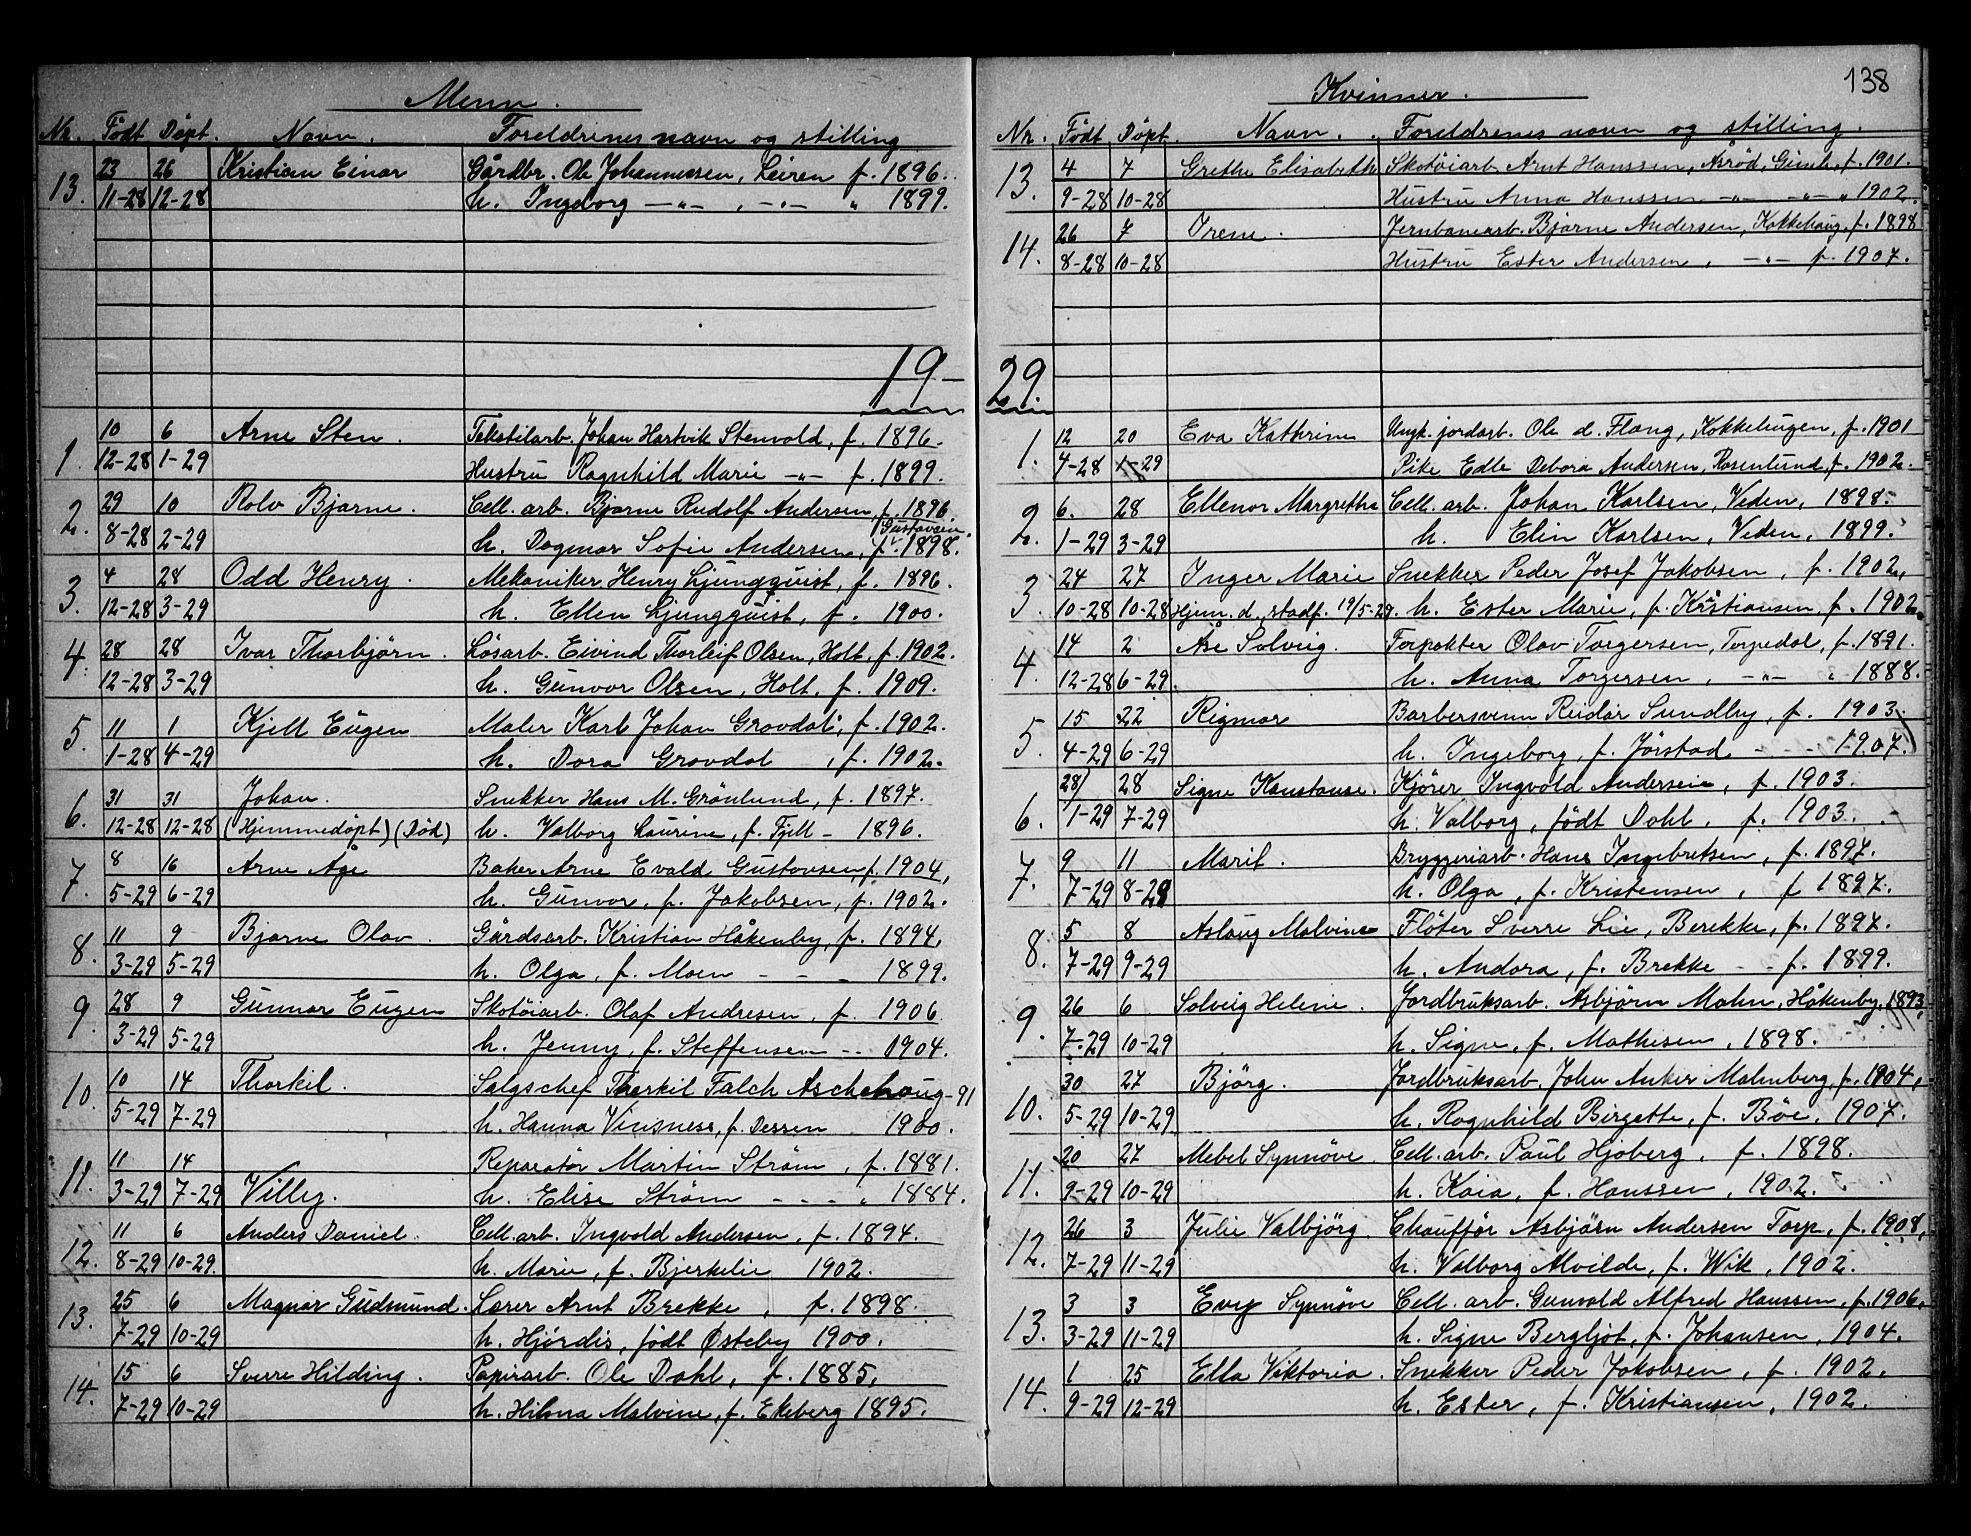 138
Menn.
Nr. Födt Döpt. Navn. Foreldrenes navn og stilling
13. 23 26 Kristian Einar Gårdbr. Ole Johannessen, Leiren f. 1896.
11-28 12-28 h. Ingeborg —"— , —"— " 1899.
19-
1. 10 6 Arne Sten. Tekstilarb. Johan Hartvik Stenvold, f. 1896.
12-28 1-29 Hustru Ragnhild Marie —"— f. 1899.
2. 29 10 Rolv Bjarne. Cell. arb. Bjarne Rudolf Andersen, f. 1896.
(Gustavsen.
8-28 2-29 h. Dagmar Sofie Andersen, f. 1898.
3. 4 28 Odd Henry. Mekaniker Henry Ljungquist, f. 1896.
12-28 3-29 h. Ellen Ljungquist, f. 1900.
4. 28 28 Ivar Thorbjörn. Lösarb. Eivind Thorleif Olsen, Holt, f. 1902.
12-28 3-29 h. Gunvor Olsen, Holt, f. 1909.
5. 11 1 Kjell Eugen Maler Karl Johan Grovdal, f. 1902.
1-28 4-29 h. Dora Grovdal , f. 1902.
6. 31 31 Johan. Snekker Hans M. Grönlund, f. 1897.
12-28 12-28 (Hjemmedöpt) (Död) h. Valborg Laurine, f. Fjell - 1896.
7. 8 16 Arne Åge Baker Arne Evald Gustavsen, f. 1904,
5-29 6-29 h. Gunvor, f. Jakobsen, f. 1902.
8. 11 9 Bjarne Olav. Gårdsarb. Kristian Håkenby, f. 1894,
3-29 5-29 h. Olga, f. Moen - - - 1899.
9. 28 9 Gunnar Eugen Skotöiarb. Olaf Andresen, f. 1906.
3-29 5-29 h. Jenny, f. Steffensen -- 1904.
10. 10 14 Thorkil. Salgschef Thorkil Falch Aschehoug - 91
5-29 7-29 h. Hanna Vinsness, f. Dessen 1900.
11. 11 14 Reparatör Martin Ström, f. 1881.
3-29 7-29 Villy. h. Elise Ström - - - " 1884.
12. 11 6 Anders Daniel. Cell. arb. Ingvald Andersen, f. 1894.
8-29 10-29. h. Marie, f. Bjerkelie 1902.
13. 25 6 Magnar Gudmund. Lærer Arnt Brekke, f. 1898.
7-29 10-29 h. Hjördis, födt Østeby 1900.
14. 15 6 Sverre Hilding. Papirarb. Ole Dahl, f. 1885,
7-29 10-29 h. Hilma Malvine, f. Ekeberg 1895.
Kvinner.
Nr. Födt Döpt. Navn. Foreldrenes navn og stilling.
13. 4 7 Grethe Elisabeth Skotöiarb. Arnt Hanssen, Asröd, Gimle, f. 1901.
9-28 10-28 Hustru Anna Hanssen —"— —"— " 1902.
14. 26 7 Irene. Jernbanearb. Bjarne Andersen, Kokkehaug, f. 1898
8-28 10-28 Hustru Ester Andersen, —"— f. 1907.
29.
1. 12 20 Eva Kathrine Ungk. jordarb. Ole d. Flang, Kokkehugen, f. 1901
4-28 1-29 Pike Edle Debora Andersen, Rosenlund, f. 1902.
2. 6. 28 Ellenor Margrethe Cell. arb. Johan Karlsen, Veden, 1898.
1-29 3-29 h. Elin Karlsen, Veden, 1899.
3. 24 27 Inger Marie Snekker Peder Josef Jakobsen, f. 1902,
10-28 10-28 Hjem. d. stadf. 19/5-29. h. Ester Marie, f. Kristiansen, f. 1902.
4. 14 2 Åse Solveig. Forpakter Olav Torgersen, Torpedal, f. 1891.
12-28 6-29. h. Anna Torgersen, —"— " 1888.
5. 15 22 Rigmor Barbersvenn Reidar Sundby, f. 1903.
4-29 6-29 h. Ingeborg, f. Jörstad - - - 1907.
6. 28/ 28 Signe Konstanse. Kjörer Ingvald Andersen, f. 1903.
1-29 7-29 h. Valborg, födt Dahl, f. 1903.
7. 9 11 Marit. Bryggeriarb. Hans Ingebretsen, f. 1897.
7-29 8-29 h. Olga, f. Kristensen, f 1897.
8. 5 8 Aslaug Malvine Flöter Sverre Lie, Berekke, f. 1897.
7-29 9-29 h. Andora, f. Brekke - - f. 1899.
9. 26 6 Solveig Helene. Jordbruksarb. Asbjörn Malm, Håkenby, 1893,
7-29 10-29 h. Signe, f. Mathisen, 1898.
10. 30 27 Björg. Jordbruksarb. John Anker Malmberg, f. 1904,
5-29 10-29 h. Ragnhild Birgette, f. Böe, 1907.
11. 20 27 Mebel Synnöve Cell. arb. Paul Hjöberg, f. 1898.
9-29 10-29 h. Kaia, f. Hanssen, 1902.
12. 26 3 Julie Valbjörg. Chaufför Asbjörn Andersen Torp, f. 1908,
7-29 11-29 h. Valborg Alvilde, f. Wik, 1902.
13. 3 3 Evy Synnöve Cell. arb. Gunvald Alfred Hanssen, f. 1906,
3-29 11-29 h. Signe Bergljot, f. Johansen, 1904.
14. 1 25 Ella Viktoria. Snekker Peder Jakobsen, f. 1902.
9-29 12-29 h. Ester, f. Kristiansen, 1902.